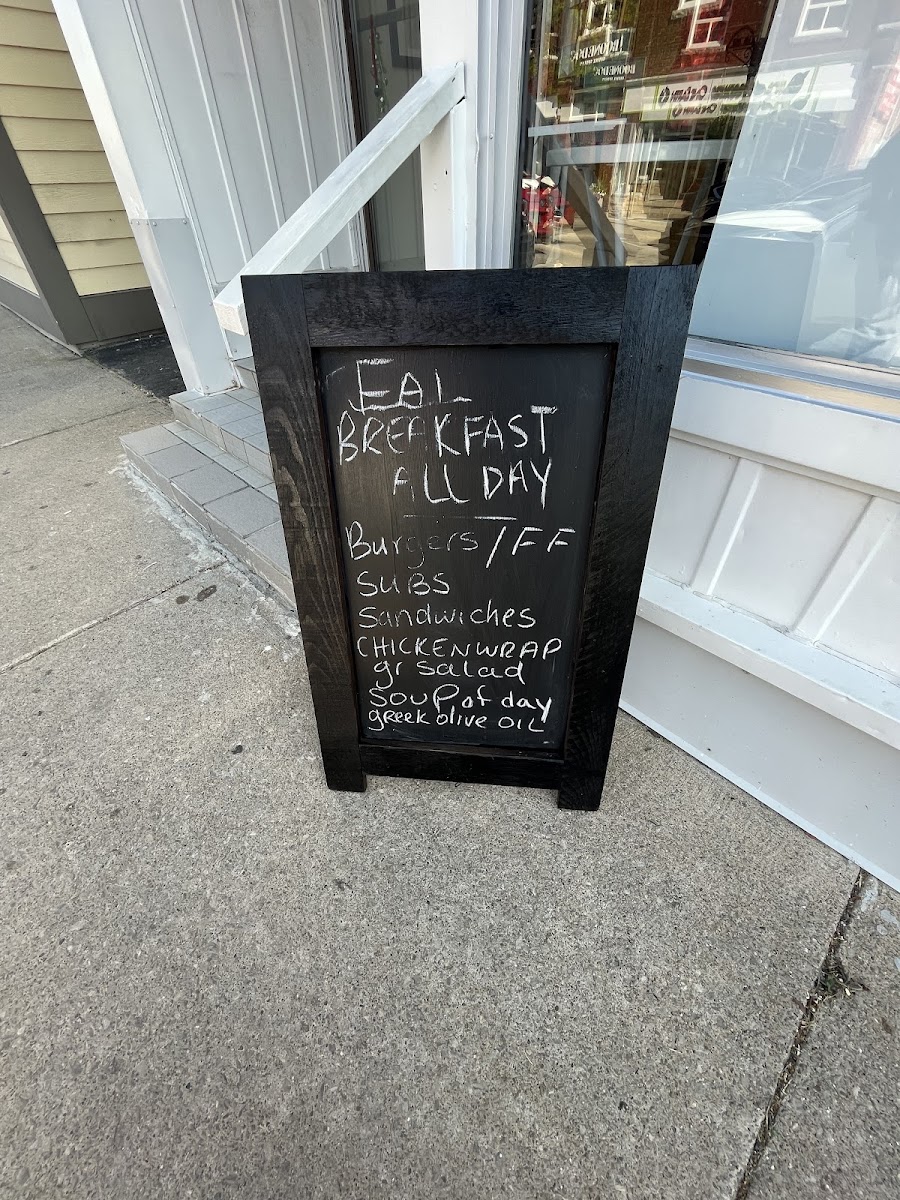 EAL
BREAKFAST
ALL DAY
Burgers / FF
SUBS
Sandwiches
CHICKEN WRAP
gr salad
SOUP of day
greek olive OIL